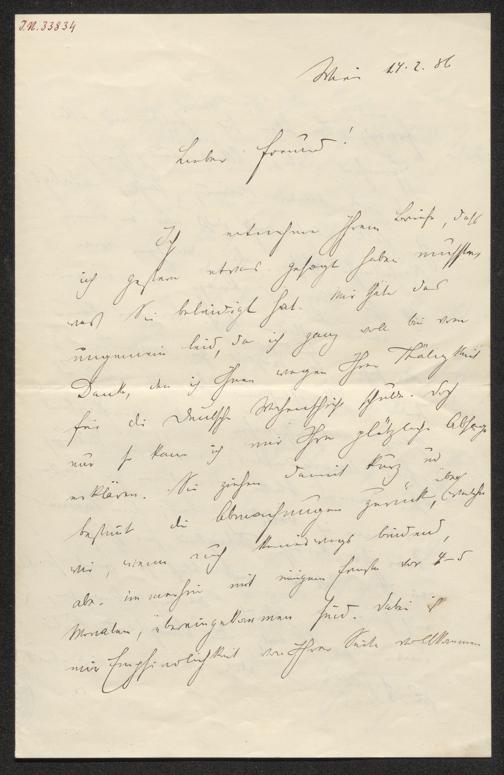 I.N. 33834
Wien 14.2.86
Lieber Freund!
Ich entnehme Ihrem Briefe, daß
ich gestern etwas gesagt haben müsste,
was Sie beleidigt hat. Mir thäte das
ungemein leid, da ich ganz voll bin vom
Dank, den ich Ihnen wegen Ihrer Thätigkeit
für die Deutsche Wochenschrift schulde. Doch
nur so kann ich mir Ihre plötzliche Absage
erklären. Sie ziehen damit kurz und
bestimt die Abmachungen zurück, über welche
wir, wenn auch keineswegs bindend,
aber immerhin mit einigem Ernste vor 4-5
Monaten, übereingekommen sind. Dabei ist
mir Empfindlichkeit von Ihrer Seite vollkommen